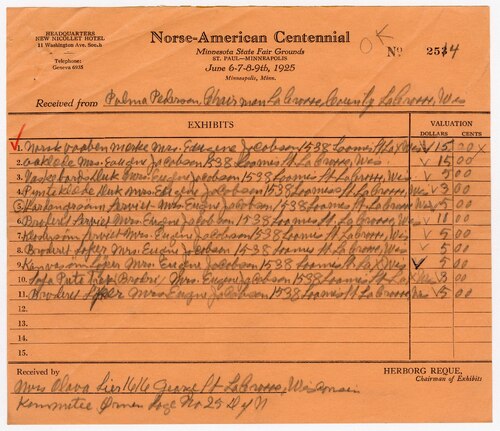 HEADQUARTERS
NEW NICOLLET HOTEL
11 Washington Ave. South
Telephone:
Geneva 6935
Norse-American Centennial
Minnesota State Fair Grounds
ST. PAUL—MINNEAPOLIS
June 6-7-8-9th, 1925
Minneapolis, Minn.
OK
No 2534
Received from Palma Pederson Chairman La Crosse County La Crosse, Wis
EXHIBITS
VALUATION
DOLLARS CENTS
1. Norsk vaaben merke Mrs. Eugene Jacobson 1538 Loomis St La X Wis 15 00 X
2. Mrs. Eugene Jacobson 1538 Loomis St La Crosse, Wis. 15 00
3. Mrs. Eugene Jacobson 1538 Loomis St La Crosse, Wis 5 00
4. Mrs. Eugene Jacobson 1538 Loomis St La Crosse Wis 3 00
5. Serviet Mrs. Eugene Jacobson 1538 Loomis St La Crosse Wis 5 00
6. Broderi Serviet Mrs. Eugene Jacobson 1538 Loomis St La Crosse, Wis 11 00
7. Serviet Mrs. Eugene Jacobson 1538 Loomis St La Crosse, Wis 5 00
8. Broderi Løper Mrs Eugene Jacobson 1538 Loomis St La Crosse, Wis 5 00
9. Løper Mrs. Eugene Jacobson 1538 Loomis St La X Wis 5 00
10. Sofa Pute Broderi Mrs. Eugene Jacobson 1538 Loomis St La Crosse Wis 3 00
11. Broderi Løper Mrs Eugene Jacobson 1538 Loomis St La Crosse Wis 5 00
12.
13.
14.
15.
Received by
HERBORG REQUE,
Chairman of Exhibits
Mrs Olava Lier 1616 George St La Crosse, Wisconsin
Kommitee Loge No 25 D of N